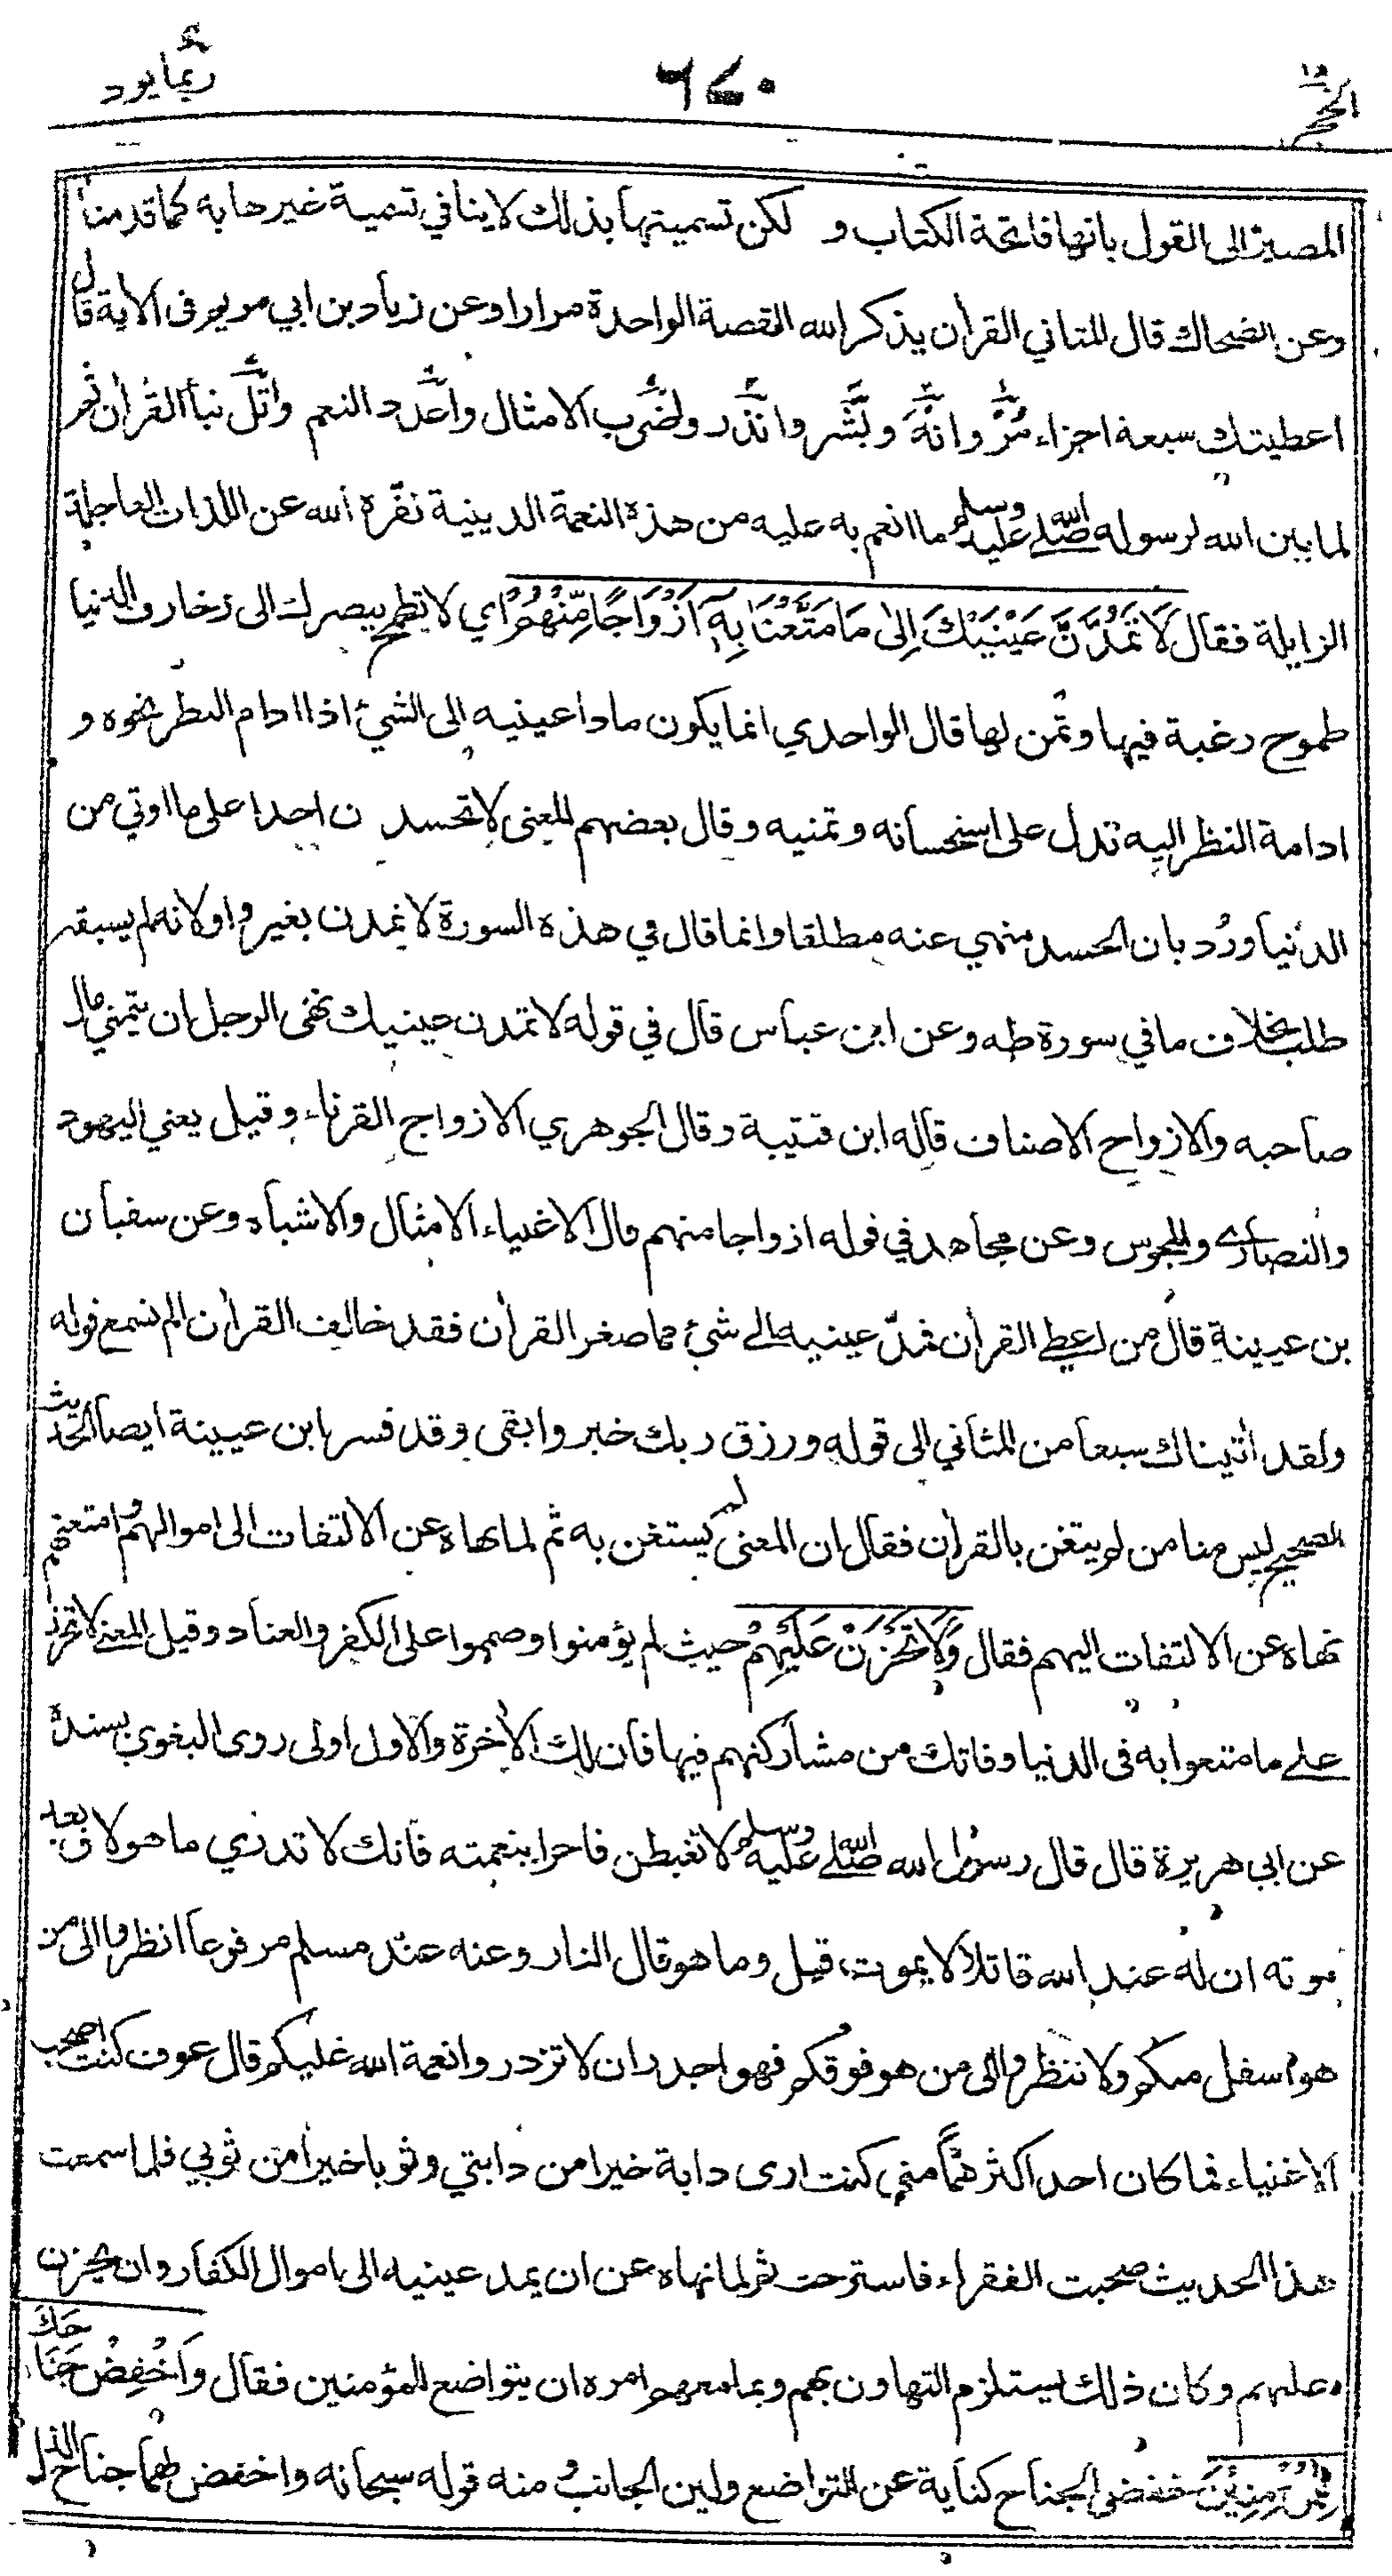 الحجر ١٥
٦٤٠
ربما يود
المصير الى القول بانها فاتحة الكتاب و لكن تسميتها بذلك لا ينافي تسمية غيرها به كما قدمنا
وعن الضحاك قال المثاني القرأن يذكر الله القصة الواحدة مرارا وعن زياد بن ابي مريم في الأية قال
اعطيتك سبعة اجزاء مُرْ وانْهَ وبَشِّر وانذِر واضرِب الامثال واعدد النعم واتل نبأ القرأن ثم
لما بين الله لرسوله صلى الله عليه وسلم ما انعم به عليه من هذه النعمة الدينية نفّره الله عن اللذات العاجلة
الزايلة فقال لَا تَمُدَّنَّ عَيْنَيْكَ اِلىٰ مَا مَتَّعْنَا بِهٖٓ اَزْوَاجًا مِّنْهُمْ اي لا يطمح ببصرك الى زخارف الدنيا
طموح رغبة فيها وتمن لها قال الواحدي انما يكون مادا عينيه الى الشئ اذا ادام النظر نحوه و
ادامة النظر اليه تدل على استحسانه وتمنيه وقال بعضهم المعنى لا تحسد ن احدا على ما اوتي من
الدنيا ورُد بان الحسد منهي عنه مطلقا وانما قال في هذه السورة لا تمدن بغير واو لانه لم يسبقه
طلب بخلاف ما في سورة طه وعن ابن عباس قال في قوله لا تمدن عينيك نهى الرجل ان يتمنى مال
صاحبه والازواج الاصناف قاله ابن قتيبة وقال الجوهري الازواج القرناء وقيل يعني اليهود
والنصارى والمجوس وعن مجاهد في قوله ازواجا منهم قال الاغنياء الامثال والاشباه وعن سفيان
بن عيينة قال من اعطي القرأن فمدّ عينيه الى شئ مما صغر القرأن فقد خالف القرأن الم تسمع قوله
ولقد اٰتيناك سبعا من المثاني الى قوله ورزق ربك خير وابقى وقد فسر ابن عيينة ايضا الحديث
الصحيح ليس منا من لم يتغن بالقرأن فقال ان المعنى لم يستغن به ثم لما نهاه عن الالتفات الى اموالهم وامتعتهم
نهاه عن الالتفات اليهم فقال وَلَا تَحْزَنْ عَلَيْهِمْ حيث لم يؤمنوا وصمموا على الكفر والعناد وقيل المعنى لا تحزن
على ما متعوا به في الدنيا وفاتك من مشاركتهم فيها فان لك الأخرة والاول اولى روى البغوي بسنده
عن ابي هريرة قال قال رسول الله صلى الله عليه وسلم لا تغبطن فاجرا بنعمته فانك لا تدري ما هو لاق بعد
موته ان له عند الله قاتلا لا يموت قيل وما هو قال النار وعنه عند مسلم مرفوعا انظروا الى من
هو اسفل منكم ولا تنظروا الى من هو فوقكم فهو اجدر ان لا تزدروا نعمة الله عليكم قال عوف كنت اصحب
الاغنياء فما كان احد اكثر همًّا مني كنت ارى دابة خيرا من دابتي وثوبا خيرا من ثوبي فلما سمعت
هذا الحديث صحبت الفقراء فاسترحت ثم لما نهاه عن ان يمد عينيه الى اموال الكفار وان يحزن
عليهم وكان ذلك يستلزم التهاون بهم وبما معهم امره ان يتواضع للمؤمنين فقال وَاخْفِضْ جَنَاحَكَ
لِلْمُؤْمِنِيْنَ خفض الجناح كناية عن التواضع ولين الجانب ومنه قوله سبحانه واخفض لهما جناح الذل